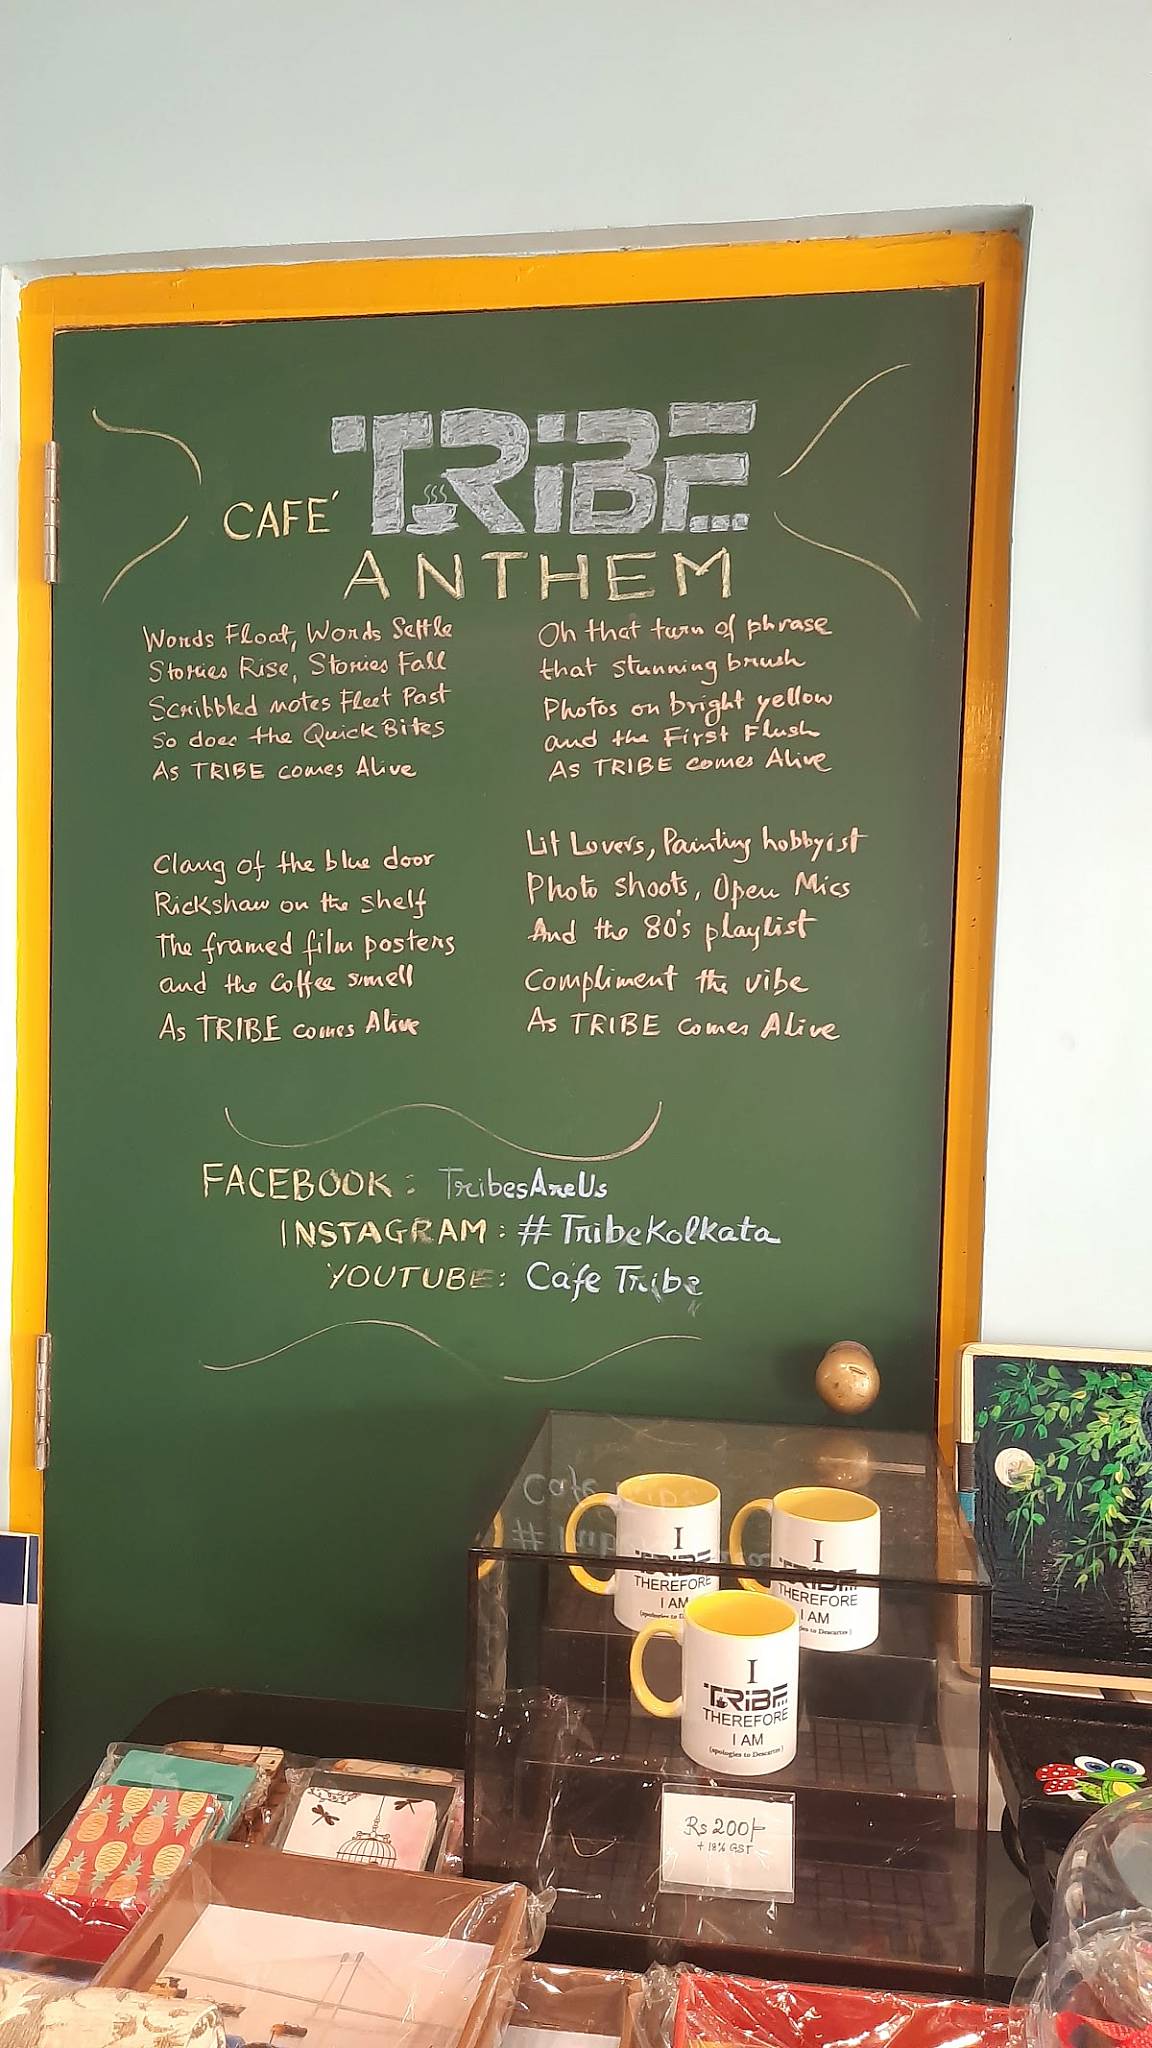 CAFE´ TRiBE
ANTHEM
Words Float, Words Settle
Stories Rise, Stories Fall
Scribbled notes Fleet Past
So does the Quick Bites
As TRIBE comes Alive
Clang of the blue door
Rickshaw on the shelf
The framed film posters
and the Coffee smell
As TRIBE comes Alive
Oh that turn of phrase
that stunning brush
Photos on bright yellow
and the First Flush
As TRIBE comes Alive
Lit Lovers, Painting hobbyist
Photo shoots, Open Mics
And the 80's playlist
Compliment the vibe
As TRIBE comes Alive
FACEBOOK: TribesAreUs
INSTAGRAM: # TribeKolkata
YOUTUBE: Cafe Tribe
I
TRiBE
THEREFORE
I AM
(apologies to D
I
TRiBE
THEREFORE
I AM
gies to Descartes)
I
TRiBE
THEREFORE
I AM
(apologies to Descartes)
Rs 200/-
+ 18% GST